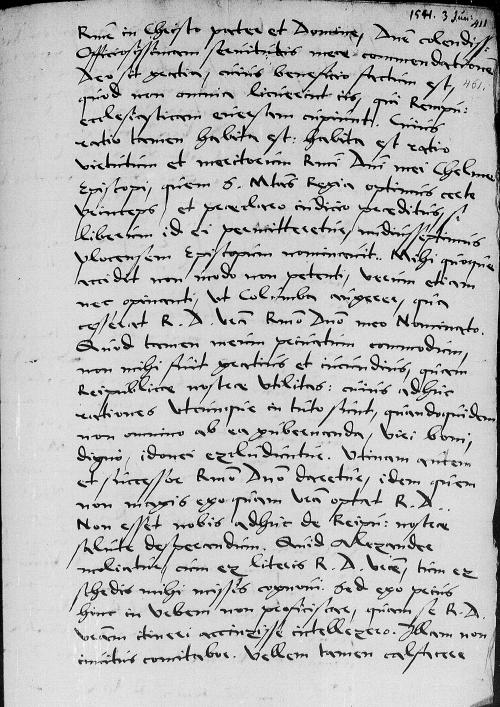 1541. 3 Junii 411
Rme in Christo pater et Domine, Dne colendiss:
Officiosissimam servitutis mee commendationem.
Deo sit gratia, cuius beneficio factum est, 461.
quod non omnia licuerint iis, qui Rempu:
ecclesiasticam eversam cupiunt. Cuius
ratio tamen habita est: habita est ratio
virtutum et meritorum Rmi Dni mei Chelmen
Episcopi, quem S. Mtas Regia optimus certe
princeps, et praeclaro iudicio praeditus, si
liberum id ei permitteretur, nudiusseptimus
plocensem Episcopum nominavit. Mihi quoque
accidit non modo non petenti, verum etiam
nec opinanti, ut Columba augerer, qua
cesserat R. D. Vra Rmo Dno meo Nominato.
Quod tamen meum privatum commodum,
non mihi fuit gratius et iucundius, quam
Reipublice nostrae utilitas: cuius adhuc
rationes utcunque in tuto sunt, quandoquidem
non omnino ab ea gubernanda, viri boni,
digni, idonei excluduntur. Utinam autem
et successor Rmo Dno daretur, idem quem
non magis ego quam Vra optat R. D..
Non esset nobis adhuc de Reipu: nostrae
salute desperandum. Quid Alexander
moliatur, cum ex literis R. D. Vrae, tum ex
schedis mihi missis cognovi. Sed ego prius
hinc in Urbem non proficiscar, quam se R. D.
Vram itineri accinxisse intellexero. Illam non
invitus comitabor. Vellem tamen calfacere